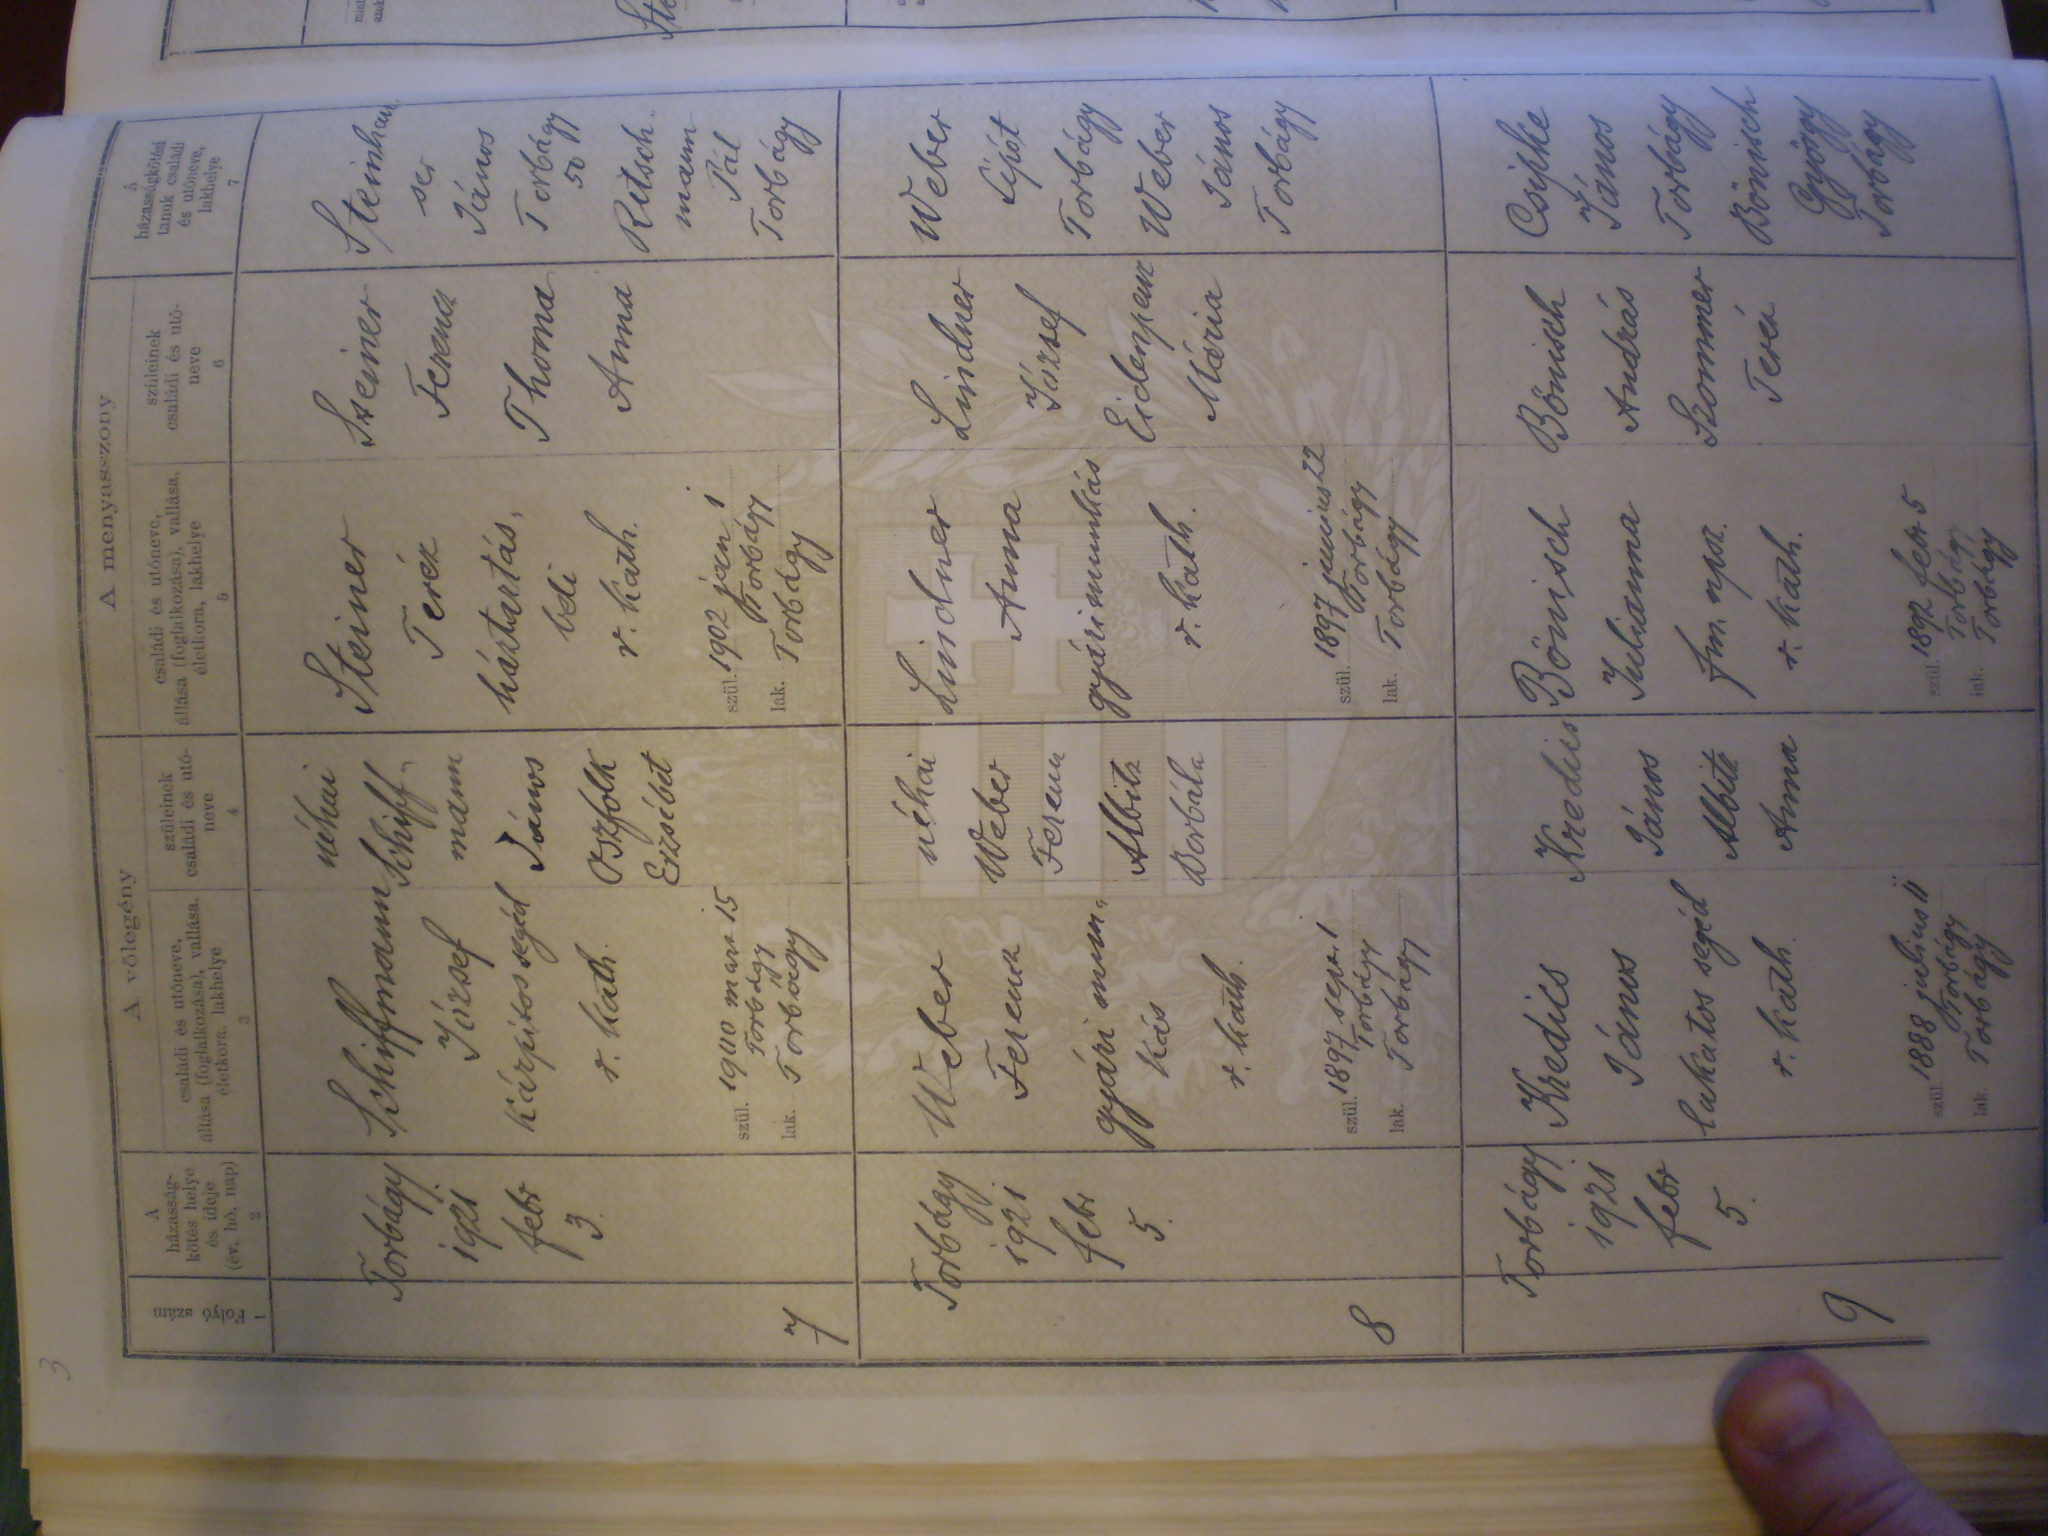 3
A vőlegény
A menyasszony
Folyó szám
1
A
házasság-
kötés helye
és ideje
(év, hó, nap)
2
családi és utóneve,
állása (foglalkozása), vallása,
életkora, lakhelye
3
szüleinek
családi és utó-
neve
4
családi és utóneve,
állása (foglalkozása), vallása,
életkora, lakhelye
5
szüleinek
családi és utó-
neve
6
A
házasságkötési
tanuk családi
és utóneve,
lakhelye
7
7
Torbágy
1921
febr
3.
Schiffmann
József
kárpitos segéd
r. kath.
szül. 1900 marc 15
Torbágy
lak. Torbágy
néhai
Schiff-
mann
János
Oszfolk
Erzsébet
Steiner
Teréz
háztartás,
beli
r. kath.
szül. 1902 jan 1
Torbágy
lak. Torbágy
Steiner
Ferenc
Thoma
Anna
Steinhau-
ser
János
Torbágy
50
Retsch-
mann
Pál
Torbágy
8
Torbágy
1921
febr
5.
Weber
Ferenc
gyári mun-
kás
r. kath.
szül. 1897 sept 1
Torbágy
lak. Torbágy
néhai
Weber
Ferenc
Albitz
Borbála
Lindner
Anna
gyárimunkás
r. kath.
szül. 1897 junius 22
Torbágy
lak. Torbágy
Lindner
József
Eidenpenz
Mária
Weber
Lipót
Torbágy
Weber
János
Torbágy
9
Torbágy
1921
febr
5.
Kredics
János
lakatos segéd
r. kath.
szül. 1888 julius 11
Torbágy
lak. Torbágy
Kredics
János
Albitz
Anna
Bönisch
Julianna
fm. npsz.
r. kath.
szül. 1892 febr 5
Torbágy
lak. Torbágy
Bönisch
András
Szommer
Teréz
Csipke
János
Torbágy
Bönisch
György
Torbágy